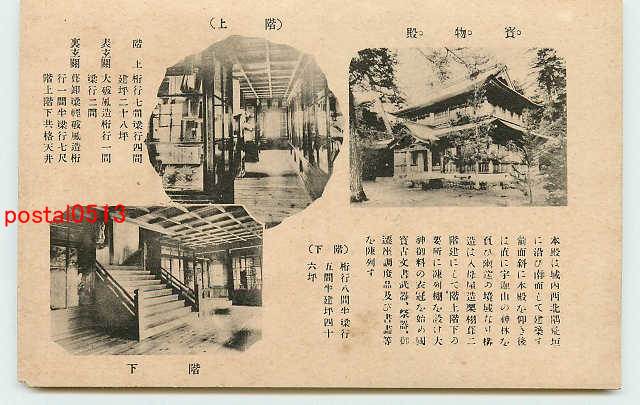 寶物殿
（階上）
階上 桁行七間梁行四間
建坪二十八坪
表玄關 大破風造桁行一間
梁行二間
裏玄關 葺卸梁軒破風造桁
行一間半梁行七尺
階上階下共格天井
本殿は城内西北隅荒垣
に沿ひ南面して建築す
前面斜に本殿を仰き後
は直に宇迦山の神林を
負ひ幽邃の境域なり構
造は入母屋造栗栩葺二
階建にして階上階下の
要所に陳列棚を設け大
神御料の衣冠を始め國
寶古文書武器、祭器、御
遷座調度品及び書畫等
を陳列す
（階下） 桁行八間半梁行
五間半建坪四十
六坪
階下
postal0513